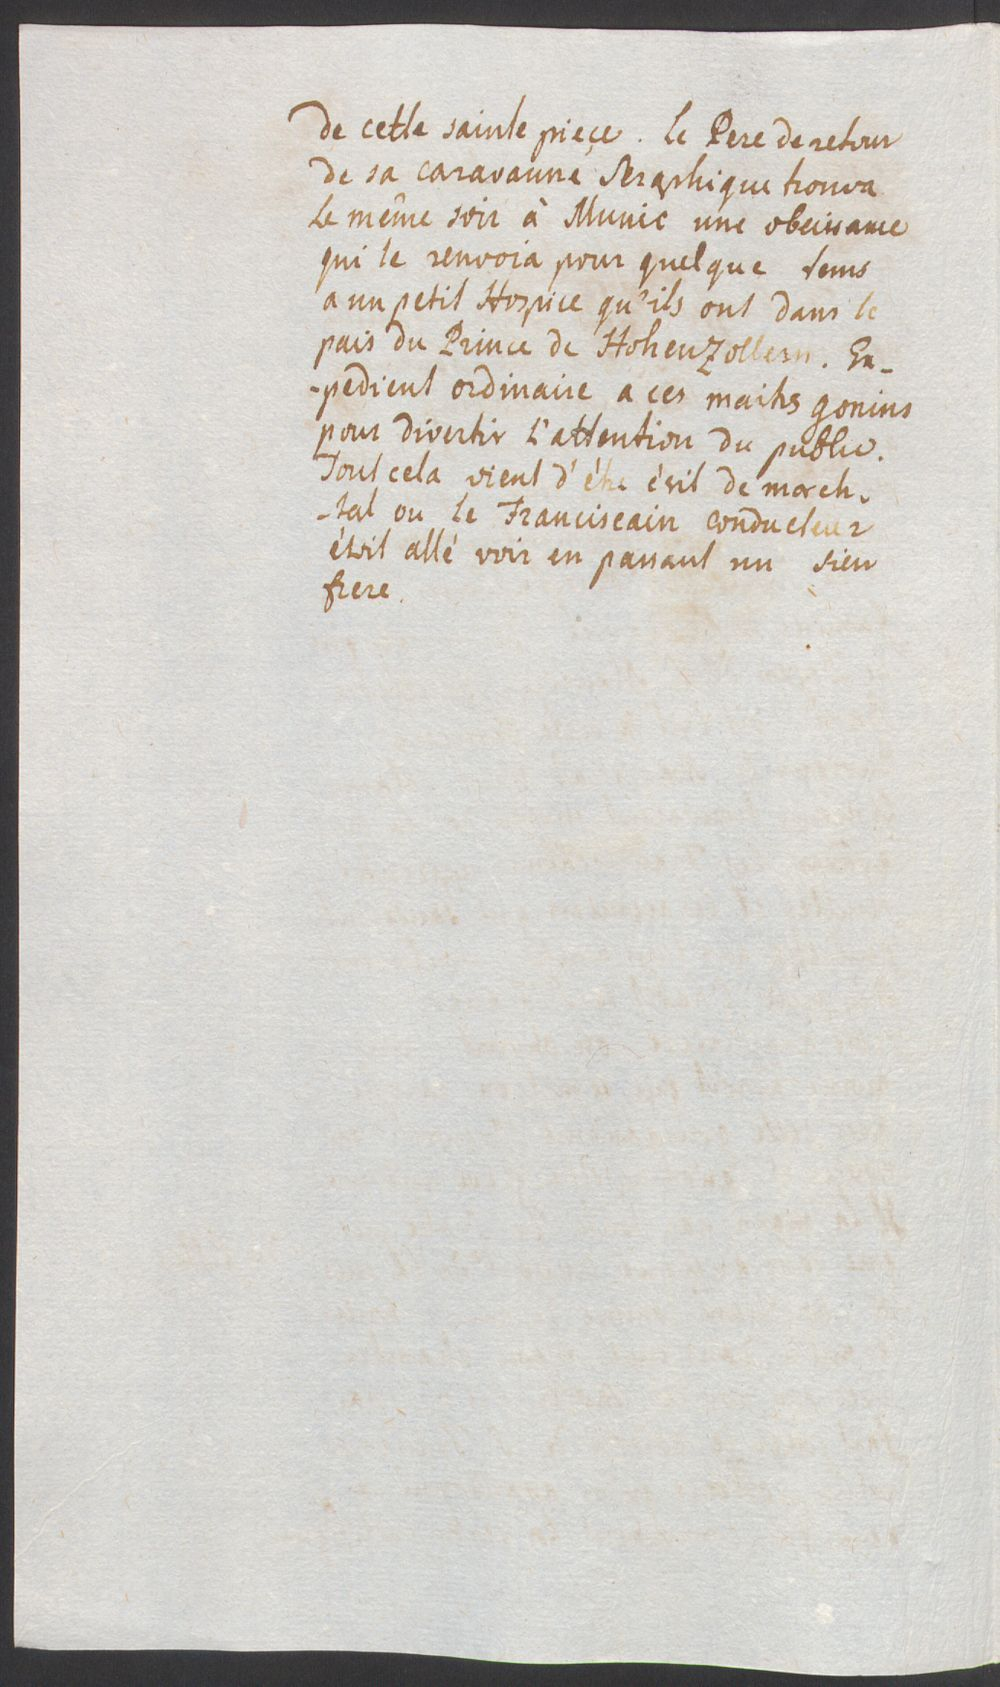 de cette sainte piece. Le Pere de retour
de sa caravanne Seraphique trouva
le même soir à Munic une obeissance
qui le renvoia pour quelque tems
a un petit Hospice qu'ils ont dans le
païs du Prince de Hohenzollern. Ex-
-pedient ordinaire a ces maitres gonins
pour divertir l'attention du public.
Tout cela vient d'étre écrit de march-
-tal ou le Franciscain conducteur
étoit allé voir en passant un sien
frere.